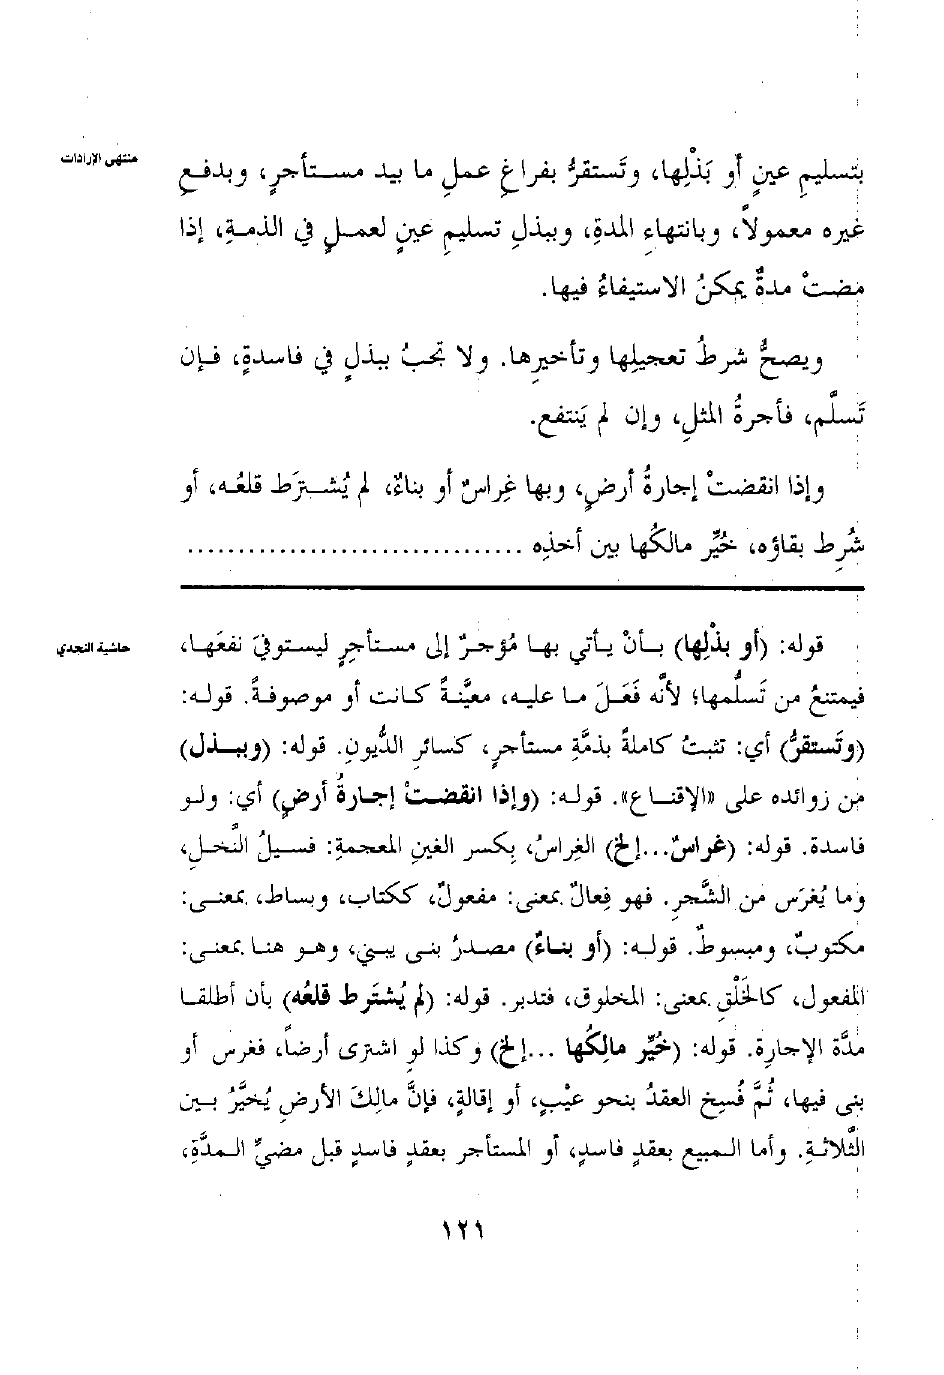 منتهى الإرادات
بتسليمِ عينٍ أو بَذْلِها، وتَستقرُّ بفراغِ عملِ ما بيد مستأجرٍ، وبدفعِ
غيره معمولاً، وبانتهاءِ المدةِ، وببذلِ تسليمِ عينٍ لعملٍ في الذمةِ، إذا
مضتْ مدةٌ يمكنُ الاستيفاءُ فيها.
ويصحُّ شرطُ تعجيلِها وتأخيرِها. ولا تجبُ ببذلٍ في فاسدةٍ، فإن
تَسلَّم، فأجرةُ المثلِ، وإن لم يَنتفع.
وإذا انقضتْ إجارةُ أرضٍ، وبها غِراسٌ أو بناءٌ، لم يُشترَط قلعُه، أو
شُرِط بقاؤه، خُيِّر مالكُها بين أخذِه ................................
حاشية النجدي
قوله: (أو بذْلِها) بأنْ يأتي بها مُؤجرٌ إلى مستأجرٍ ليستوفيَ نفعَها،
فيمتنعُ من تَسلُّمها؛ لأنَّه فَعَلَ ما عليه، معيَّنةً كانت أو موصوفةً. قوله:
(وتَستقرُّ) أي: تثبتُ كاملةً بذمَّةِ مستأجرٍ، كسائرِ الدُّيونِ. قوله: (وببذل)
من زوائده على «الإقناع». قوله: (وإذا انقضتْ إجارةُ أرضٍ) أي: ولو
فاسدة. قوله: (غراسٌ...إلخ) الغِراسُ، بكسر الغينِ المعجمةِ: فسيلُ النَّخلِ،
وما يُغرَس من الشَّجرِ. فهو فِعالٌ بمعنى: مفعولٌ، ككتاب، وبساط، بمعنى:
مكتوبٌ، ومبسوطٌ. قوله: (أو بناءٌ) مصدرُ بنى يبني، وهو هنا بمعنى:
المفعول، كالخَلْقِ بمعنى: المخلوق، فتدبر. قوله: (لم يُشتَرط قلعُه) بأن أطلقا
مدَّة الإجارةِ. قوله: (خُيِّر مالِكُها ...إلخ) وكذا لو اشترى أرضاً، فغرس أو
بنى فيها، ثُمَّ فُسِخ العقدُ بنحو عيْبٍ، أو إقالةٍ، فإنَّ مالِكَ الأرضِ يُخيَّرُ بين
الثَّلاثةِ. وأما المبيع بعقدٍ فاسدٍ، أو المستأجر بعقدٍ فاسدٍ قبل مضيِّ المدَّةِ،
١٢١